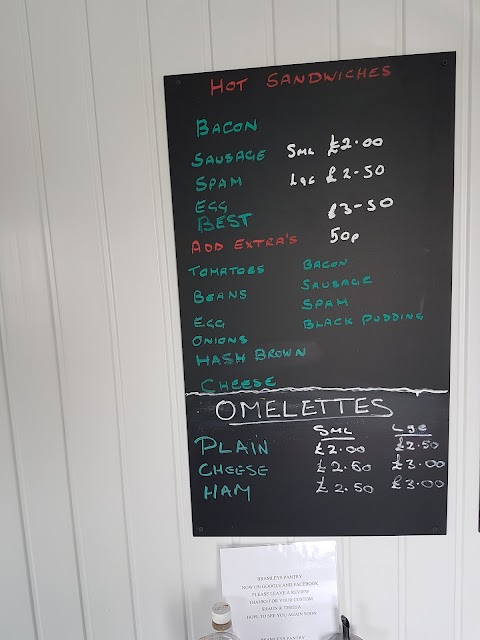 HOT SANDWICHES
BACON
SAUSAGE SML £2.00
SPAM Lge £2-50
EGG
BEST £3-50
ADD EXTRA'S 50p
TOMATOES BACON
BEANS SAUSAGE
EGG SPAM
ONIONS BLACK PUDDING
HASH BROWN
CHEESE
OMELETTES
SML Lge
PLAIN £2.00 £2.50
CHEESE £2.60 £3.00
HAM £2.50 £3.00
BRAMLEYS PANTRY
NOW ON GOOGLE AND FACEBOOK
PLEASE LEAVE A REVIEW
THANKS FOR YOUR CUSTOM
HOPE TO SEE YOU AGAIN SOON
BRAMLEYS PANTRY